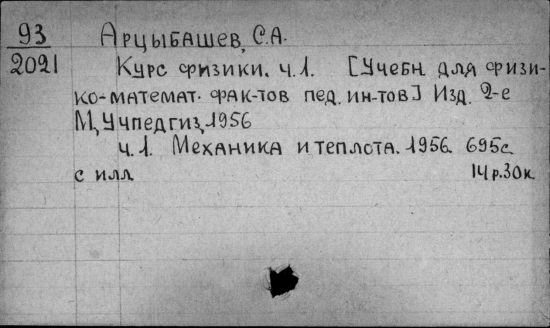 93 Арцыбашев, С.А.
2021 Курс физики. ч.1. [Учебн. для физи-
ко-математ. фак-тов пед. ин-тов] Изд. 2-е
М, Учпедгиз, 1956
ч.1. Механика и теплота. 1956. 695с.
с илл 14р.30к